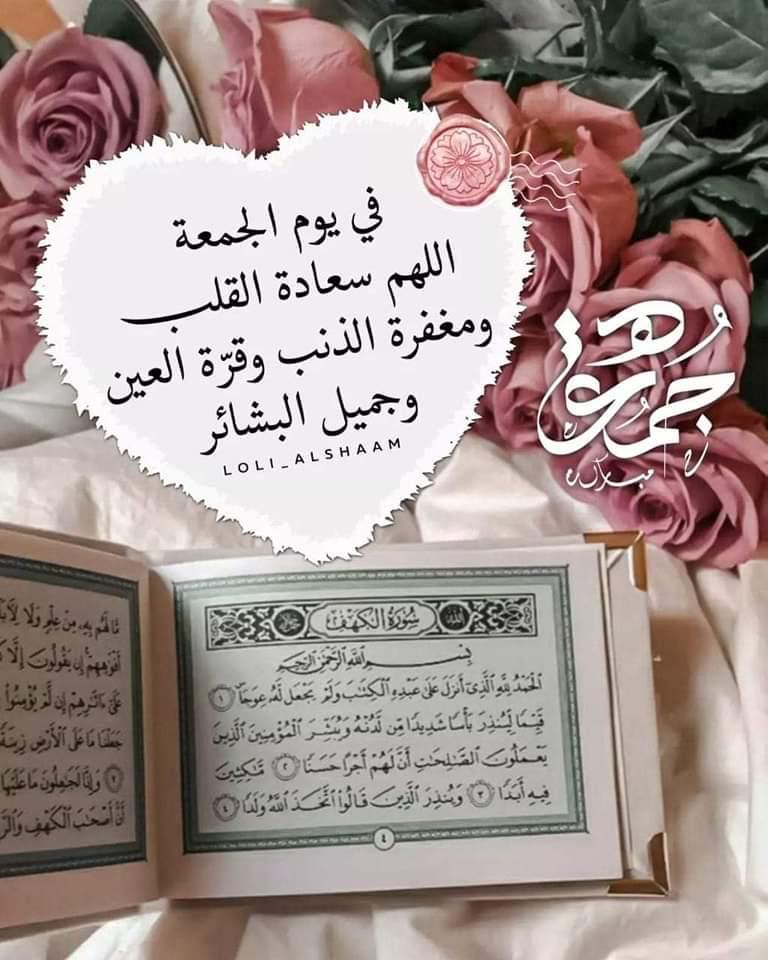 في يوم الجمعة
اللهم سعادة القلب
ومغفرة الذنب وقرّة العين
وجميل البشائر
LOLI_ALSHAAM
جُمعة
مباركة
سُورَةُ الكَهْفِ
بِسْمِ اللَّهِ الرَّحْمَنِ الرَّحِيمِ
الْحَمْدُ لِلَّهِ الَّذِي أَنزَلَ عَلَى عَبْدِهِ الْكِتَٰبَ وَلَمْ يَجْعَل لَّهُ عِوَجَا ١
قَيِّمًا لِّيُنذِرَ بَأْسًا شَدِيدًا مِّن لَّدُنْهُ وَيُبَشِّرَ الْمُؤْمِنِينَ الَّذِينَ
يَعْمَلُونَ الصَّٰلِحَٰتِ أَنَّ لَهُمْ أَجْرًا حَسَنًا ٢ مَّٰكِثِينَ
فِيهِ أَبَدًا ٣ وَيُنذِرَ الَّذِينَ قَالُوا اتَّخَذَ اللَّهُ وَلَدًا ٤
٤
مَّا لَهُم بِهِ مِنْ عِلْمٍ وَلَا
أَفْوَٰهِهِمْ إِن يَقُولُونَ إِلَّا
عَلَىٰ ءَاثَٰرِهِمْ إِن لَّمْ يُؤْمِنُوا
جَعَلْنَا مَا عَلَى الْأَرْضِ زِينَةً
٧ وَإِنَّا لَجَٰعِلُونَ مَا عَلَيْهَا
أَنَّ أَصْحَٰبَ الْكَهْفِ